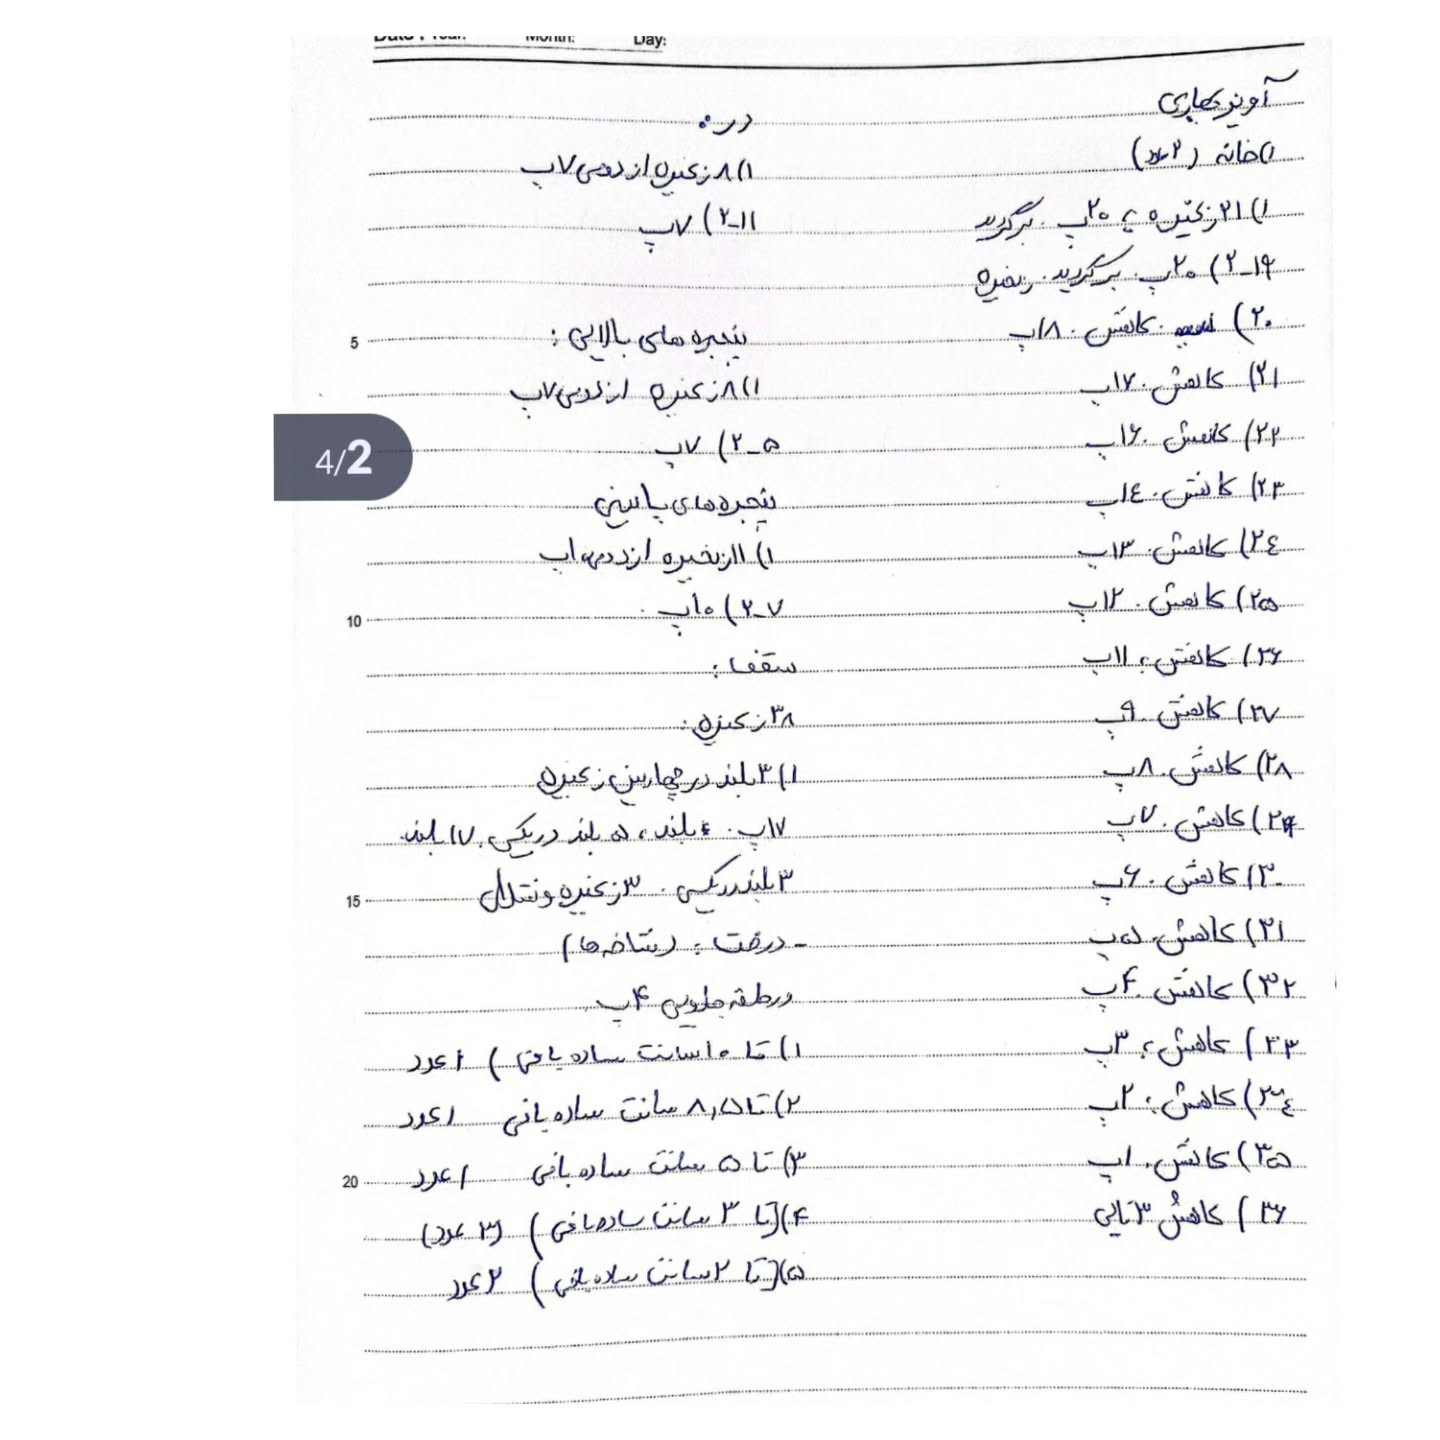 Date : Year: Month: Day:
آویز بهاری
۱) خانه (۲ عدد)
۱) ۲۱ زنجیره ، ۲۰پ . برگردید
۲-۱۹) ۲۰پ . برگردید . زنجیره
۲۰) کاهش . ۱۸پ
۲۱) کاهش . ۱۷پ
۲۲) کاهش . ۱۶پ
۲۳) کاهش . ۱٤پ
۲٤) کاهش . ۱۳پ
۲۵) کاهش . ۱۲پ
۲۶) کاهش ، ۱۱پ
۲۷) کاهش . ۹پ
۲۸) کاهش . ۸پ
۲۹) کاهش . ۷پ
۳۰) کاهش . ۶پ
۳۱) کاهش . ۵پ
۳۲) کاهش . ۴پ
۳۳) کاهش ، ۳پ
۳٤) کاهش ، ۲پ
۳۵) کاهش . ۱پ
۳۶) کاهش ۳تایی
در :
۱) ۸ زنجیره از دومی ۷پ
۲-۱۱) ۷پ
پنجره های بالایی :
۱) ۸ زنجیره از دومی ۷پ
۲-۵) ۷پ
پنجره های پایینی
۱) ۱۱ زنجیره از دومی ۱۰پ
۲-۷) ۱۰پ .
سقف :
۳۸ زنجیره :
۱) ۳ بلند در چهارمین زنجیره
۱۷پ . بلند ، ۵ بلند در یکی . ۱۷ بلند .
۳ بلند در یکی . ۳ زنجیره و
- درخت : (شاخه ها)
در حلقه جادویی ۴پ
۱) تا ۱۰ سانت ساده بافی ) ۱ عدد
۲) تا ۸,۵ سانت ساده بافی ۱ عدد
۳) تا ۵ سانت ساده بافی ۱ عدد
۴) [تا ۳ سانت ساده بافی ) (۳ عدد)
۵) [تا ۲ سانت ساده بافی ) ۲ عدد
5
10
15
20
4/2